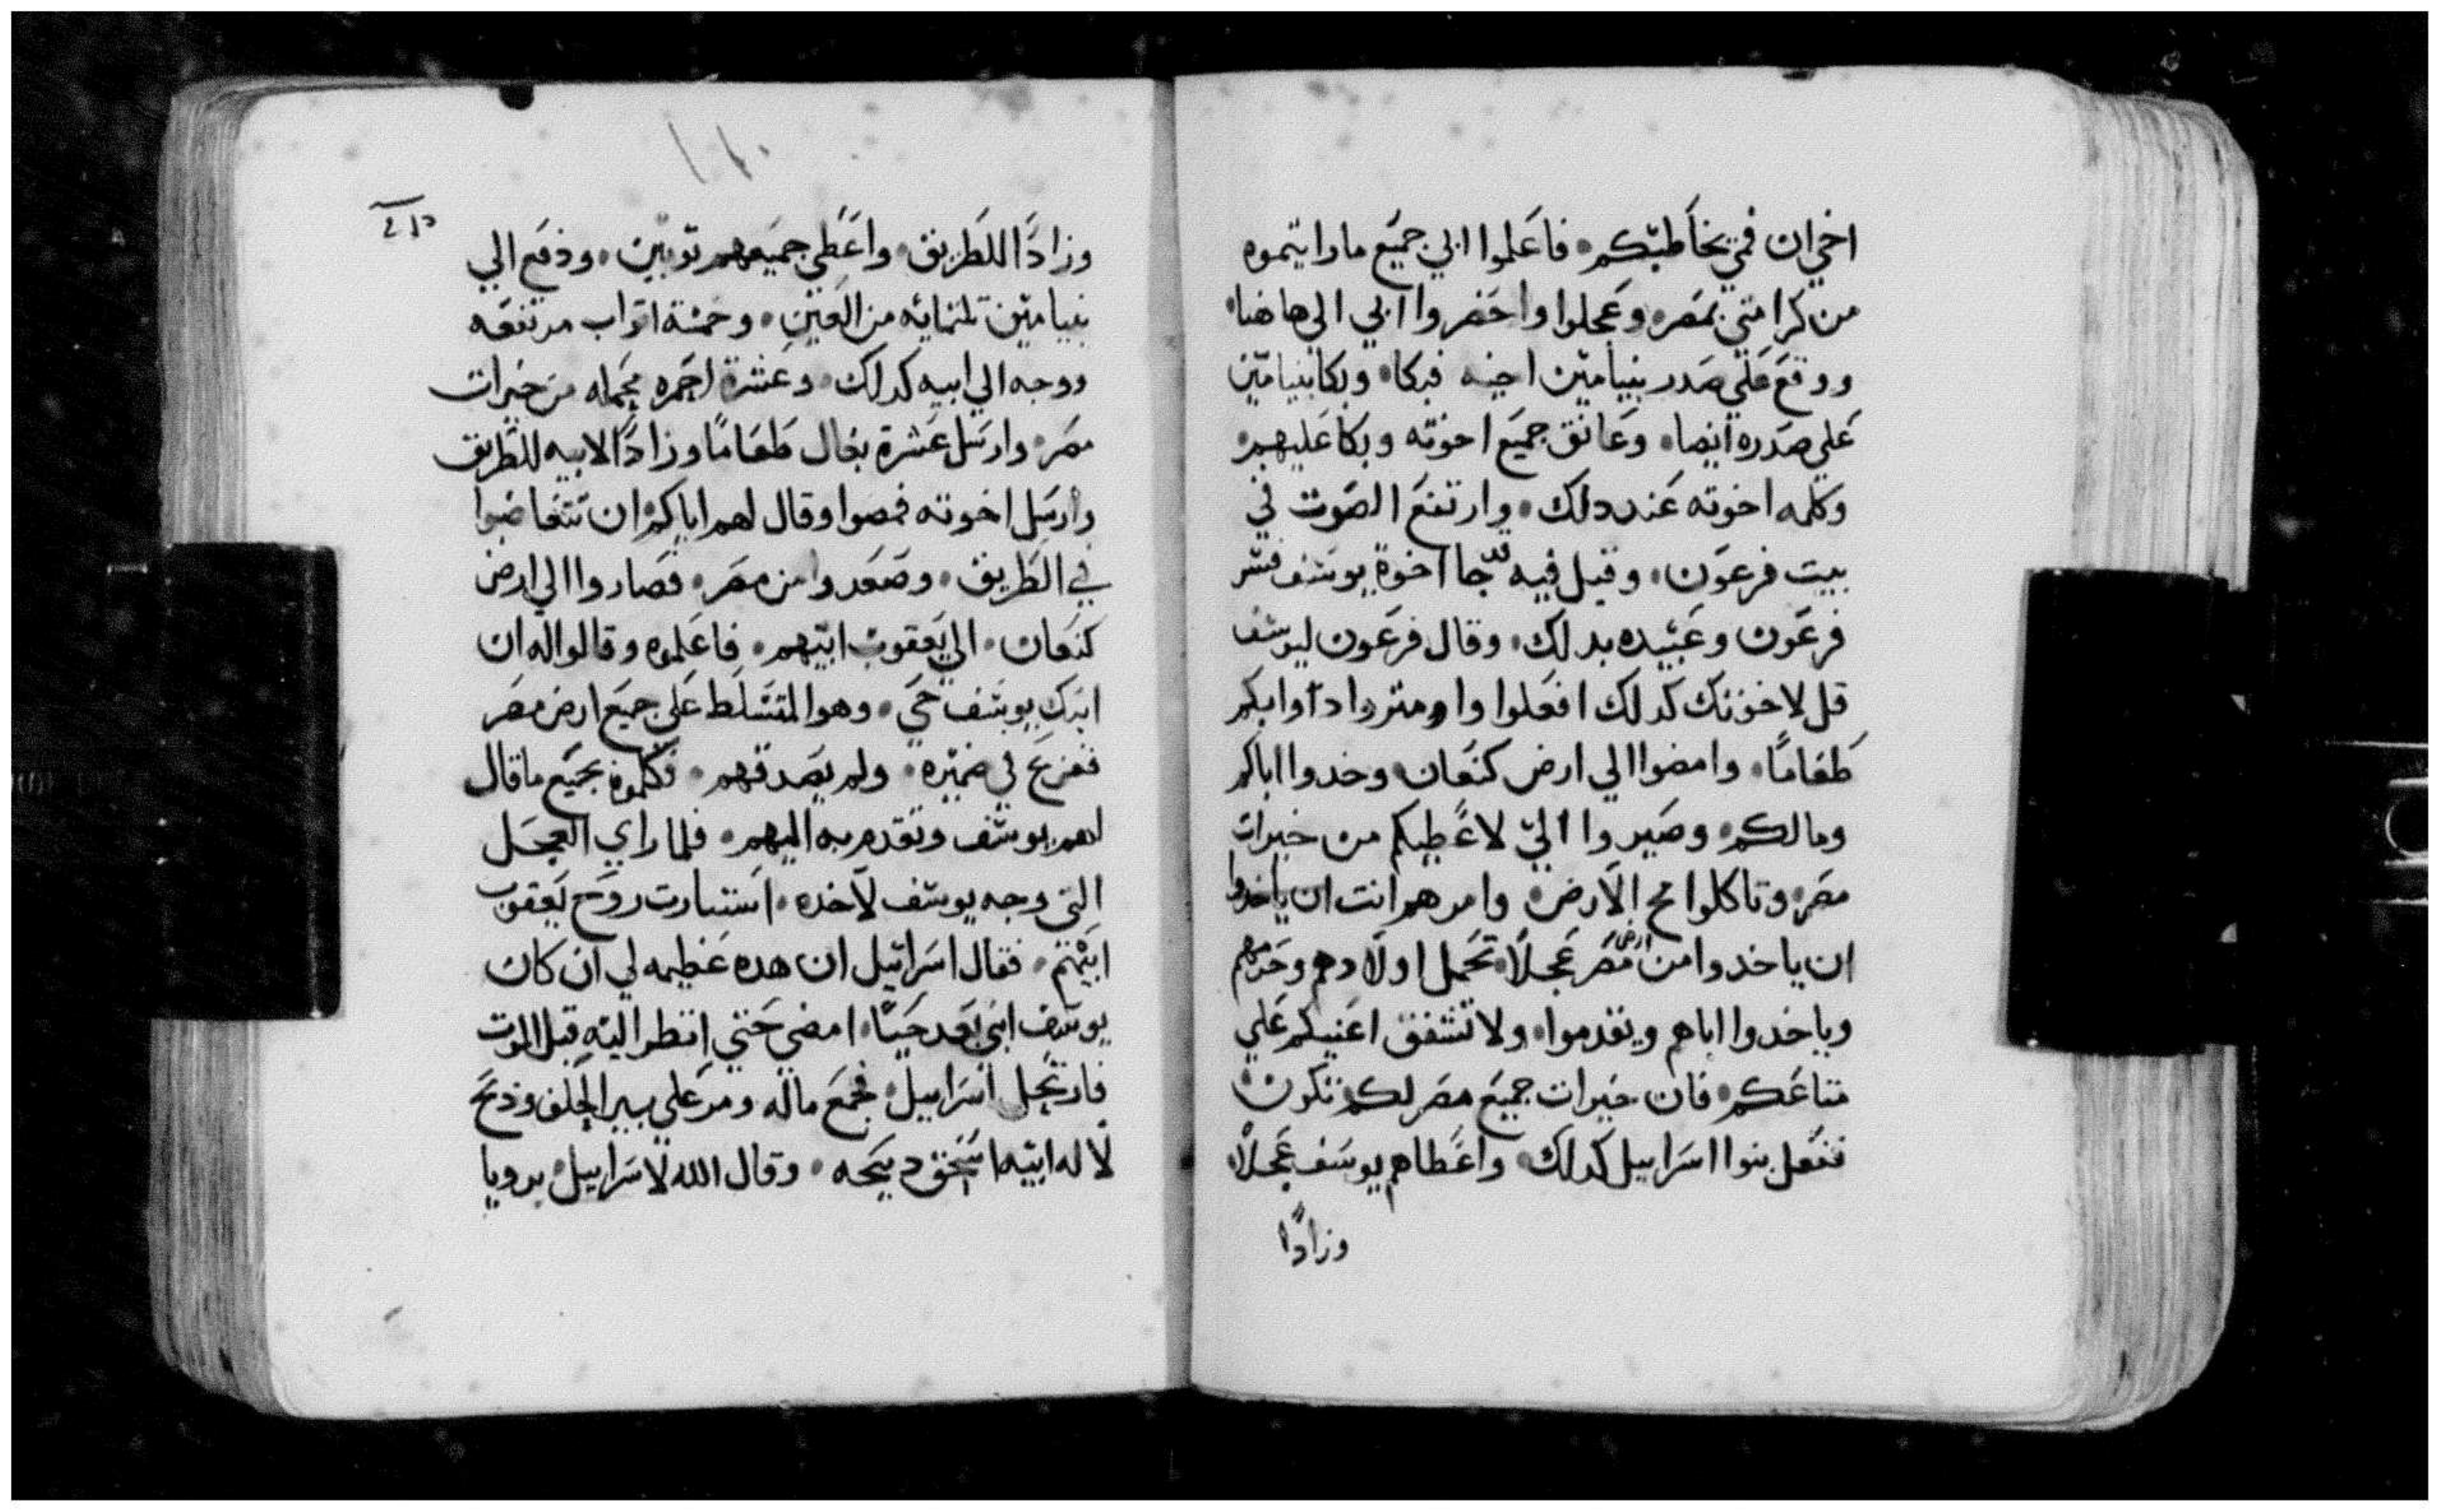 اخي ان فمي يخاطبكم فاعلموا ابي جميع ما رايتموه
من كرامتي بمصر وعجلوا واحضروا ابي الي هاهنا
ووقع علي صدر بنيامين اخيه فبكا وبكا بنيامين
علي صدره ايضا وعانق جميع اخوته وبكا عليهم
وكلمه اخوته عند دلك وارتفع الصوت في
بيت فرعون وقيل فيه قد جا اخوة يوسف فسر
فرعون وعبيده بدلك وقال فرعون ليوسف
قل لاخوتك كدلك افعلوا وابكم
طعاما وامضوا الي ارض كنعان وخدوا اباكم
ومالكم وصيروا الي لاعطيكم من خيرات
مصر وتاكلوا مخ الارض وامرهم انت ان ياخدوا
ان ياخدوا من ارض مصر عجلا تحمل اولادهم وحرمهم
وياخدوا اباهم ويقدموا ولا تشفق اعنيكم علي
متاعكم فان خيرات جميع مصر لكم تكون
ففعل بنوا اسراييل كدلك واعطاهم يوسف عجلا
وزادا
وزادا للطريق واعطي جميعهم توبين ودفع الي
بنيامين تلتمايه من العين وخمسة اتواب مرتفعه
ووجه الي ابيه كدلك وعشرة احمره محمله من خيرات
مصر وارسل عشرة بغال طعاما وزادا لابيه للطريق
وارسل اخوته فمضوا وقال لهم اياكم ان تتغاضبوا
في الطريق وصعدوا من مصر فصاروا الي ارض
كنعان الي يعقوب ابيهم فاعلموه وقالوا له ان
ابنك يوسف حي وهو المتسلط علي جميع ارض مصر
ففزع في ضميره ولم يصدقهم فكلموه بجميع ما قال
لهم يوسف وتقدم به اليهم فلما راي العجل
التي وجه يوسف لاخده استنارت روح يعقوب
ابيهم فقال اسراييل ان هده عظيمه لي ان كان
يوسف ابني بعد حيا امضي حتي انظر اليه قبل الموت
فارتحل اسراييل فجمع ماله ومر علي بير الحلف ودبح
لاله ابيه اسحق دبيحه وقال الله لاسراييل برويا